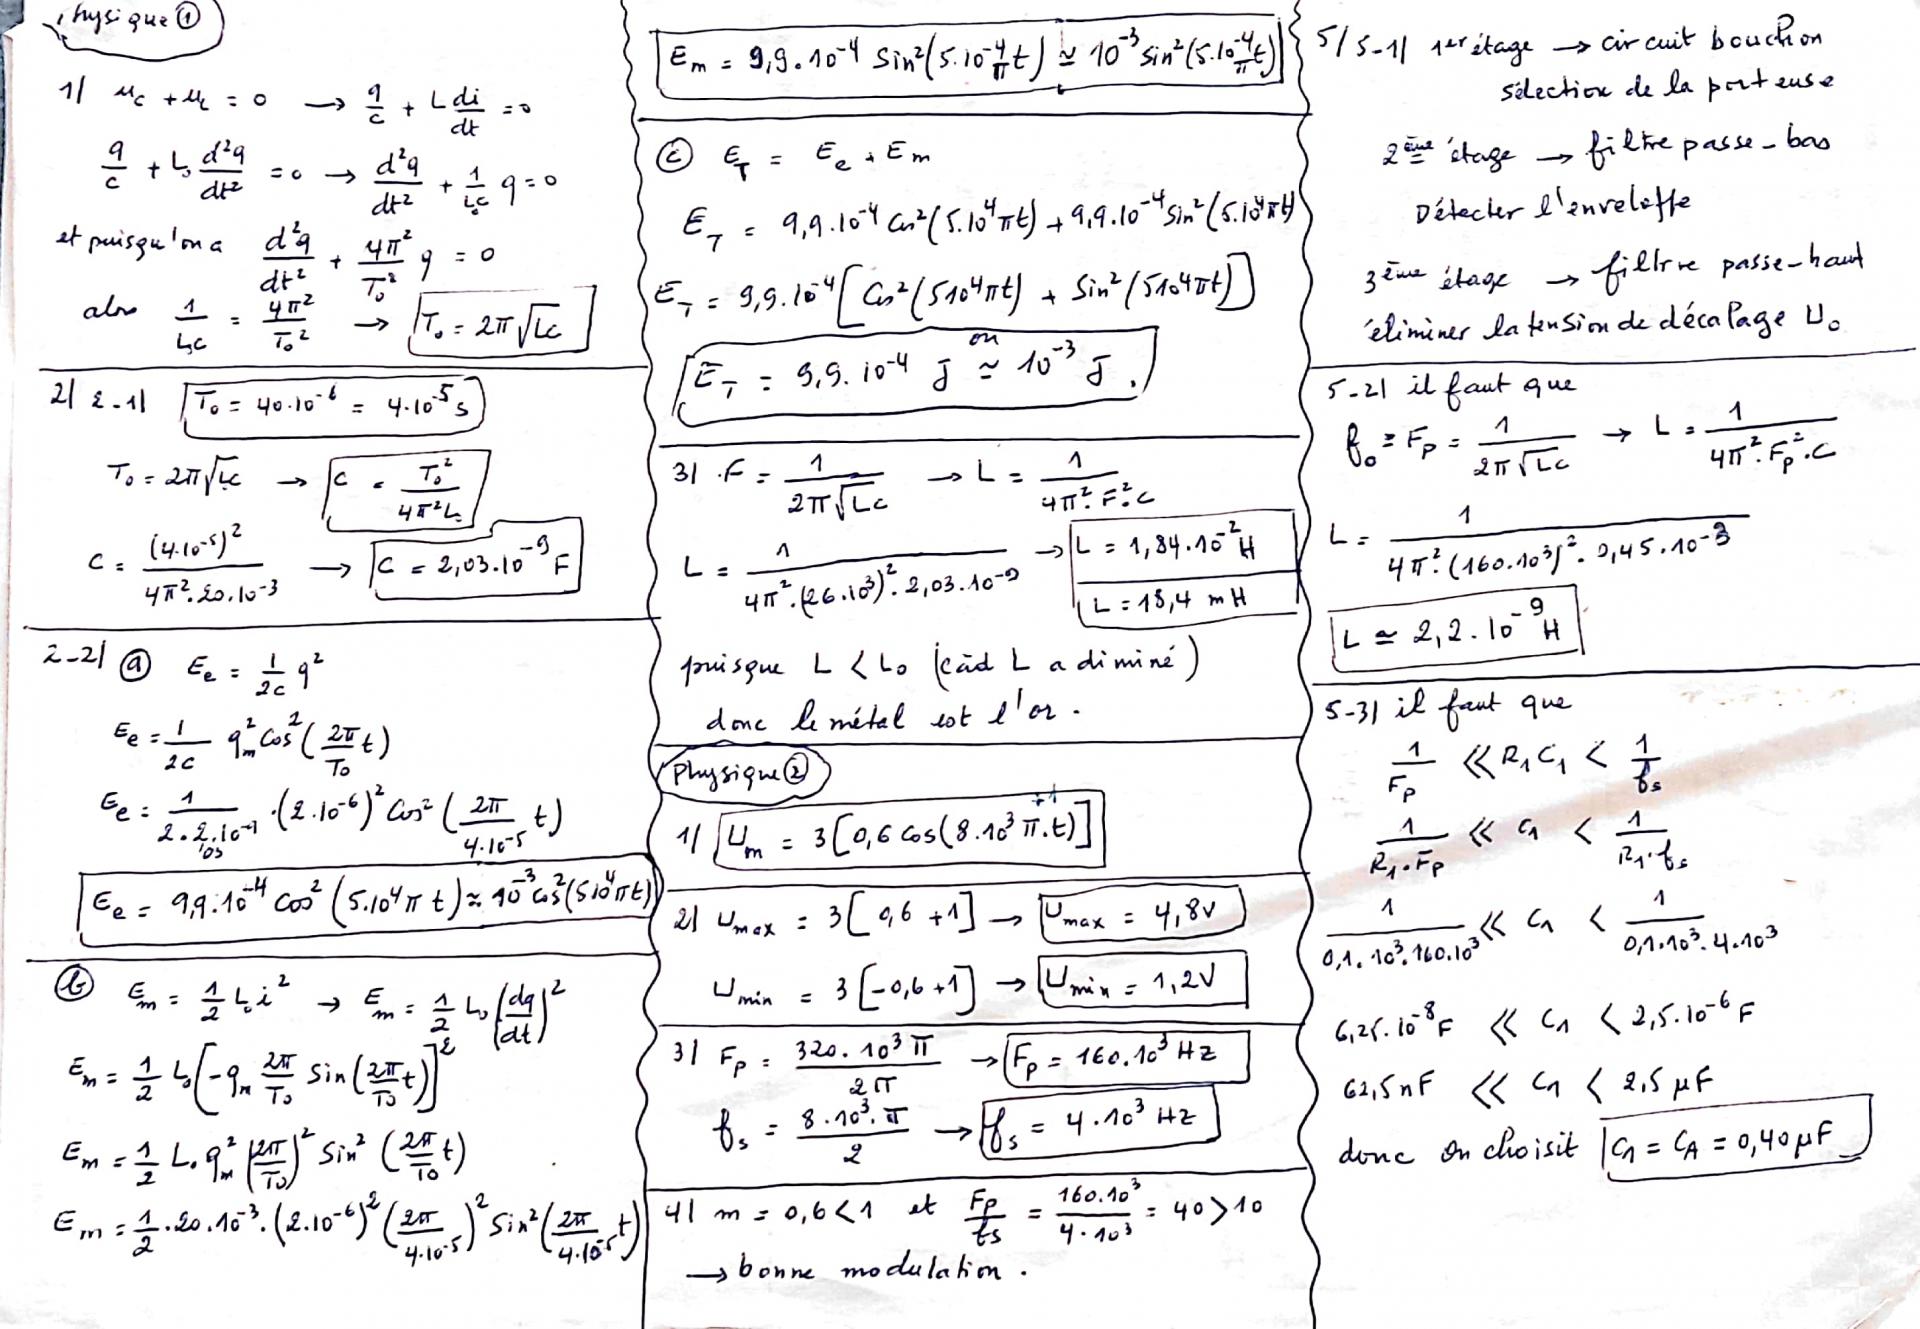 Physique ①
1/ u_c + u_L = 0 → q/c + L di/dt = 0
q/c + L₀ d²q/dt² = 0 → d²q/dt² + 1/(L₀c) q = 0
et puisqu'on a d²q/dt² + 4π²/T₀² q = 0
alors 1/(L₀c) = 4π²/T₀² → T₀ = 2π√(Lc)
2/ 2-1/ T₀ = 40.10⁻⁶ = 4.10⁻⁵ s
T₀ = 2π√(L₀c) → C = T₀²/(4π²L₀)
C = (4.10⁻⁵)²/(4π².20.10⁻³) → C = 2,03.10⁻⁹ F
2-2/ ⓐ E_e = 1/(2c) q²
E_e = 1/(2c) q_m² cos²(2π/T₀ t)
E_e = 1/(2.2,03.10⁻⁹) .(2.10⁻⁶)² cos²(2π/(4.10⁻⁵) t)
E_e = 9,9.10⁻⁴ cos²(5.10⁴π t) ≈ 10⁻³ cos²(5.10⁴πt)
ⓑ E_m = 1/2 L₀i² → E_m = 1/2 L₀ (dq/dt)²
E_m = 1/2 L₀[-q_m 2π/T₀ sin(2π/T₀ t)]²
E_m = 1/2 L₀ q_m² (2π/T₀)² sin²(2π/T₀ t)
E_m = 1/2 .20.10⁻³.(2.10⁻⁶)² (2π/(4.10⁻⁵))² sin²(2π/(4.10⁻⁵) t)
E_m = 9,9.10⁻⁴ sin²(5.10⁻⁴/π t) ≃ 10⁻³ sin²(5.10⁻⁴/π t)
ⓒ E_T = E_e + E_m
E_T = 9,9.10⁻⁴ cos²(5.10⁴πt) + 9,9.10⁻⁴ sin²(5.10⁴πt)
E_T = 9,9.10⁻⁴[cos²(5 10⁴πt) + sin²(5 10⁴πt)]
E_T = 9,9.10⁻⁴ J ou ≃ 10⁻³ J.
3/ F = 1/(2π√(Lc)) → L = 1/(4π².F².c)
L = 1/(4π².(26.10³)².2,03.10⁻⁹) → L = 1,84.10⁻² H
L = 18,4 mH
puisque L < L₀ (càd L a diminé)
donc le métal est l'or.
Physique ②
1/ U_m = 3[0,6 cos(8.10³ π.t) +1]
2/ U_max = 3[0,6 +1] → U_max = 4,8V
U_min = 3[-0,6 +1] → U_min = 1,2V
3/ F_p = 320.10³π/(2π) → F_p = 160.10³ HZ
f_s = 8.10³.π/2 → f_s = 4.10³ HZ
4/ m = 0,6 < 1 et F_p/f_s = 160.10³/(4.10³) = 40 > 10
→ bonne modulation.
5/ 5-1/ 1er étage → circuit bouchon
sélection de la porteuse
2ème étage → filtre passe-bas
Détecter l'enveloppe
3ème étage → filtre passe-haut
éliminer la tension de décalage U₀
5-2/ il faut que
f₀ = F_p = 1/(2π√(Lc)) → L = 1/(4π².F_p².C)
L = 1/(4π².(160.10³)².0,45.10⁻³)
L ≃ 2,2.10⁻⁹ H
5-3/ il faut que
1/F_p ≪ R₁C₁ < 1/f_s
1/(R₁.F_p) ≪ C₁ < 1/(R₁.f_s)
1/(0,1.10³.160.10³) ≪ C₁ < 1/(0,1.10³.4.10³)
6,25.10⁻⁸ F ≪ C₁ < 2,5.10⁻⁶ F
62,5 nF ≪ C₁ < 2,5 μF
donc on choisit C₁ = C_A = 0,40 μF